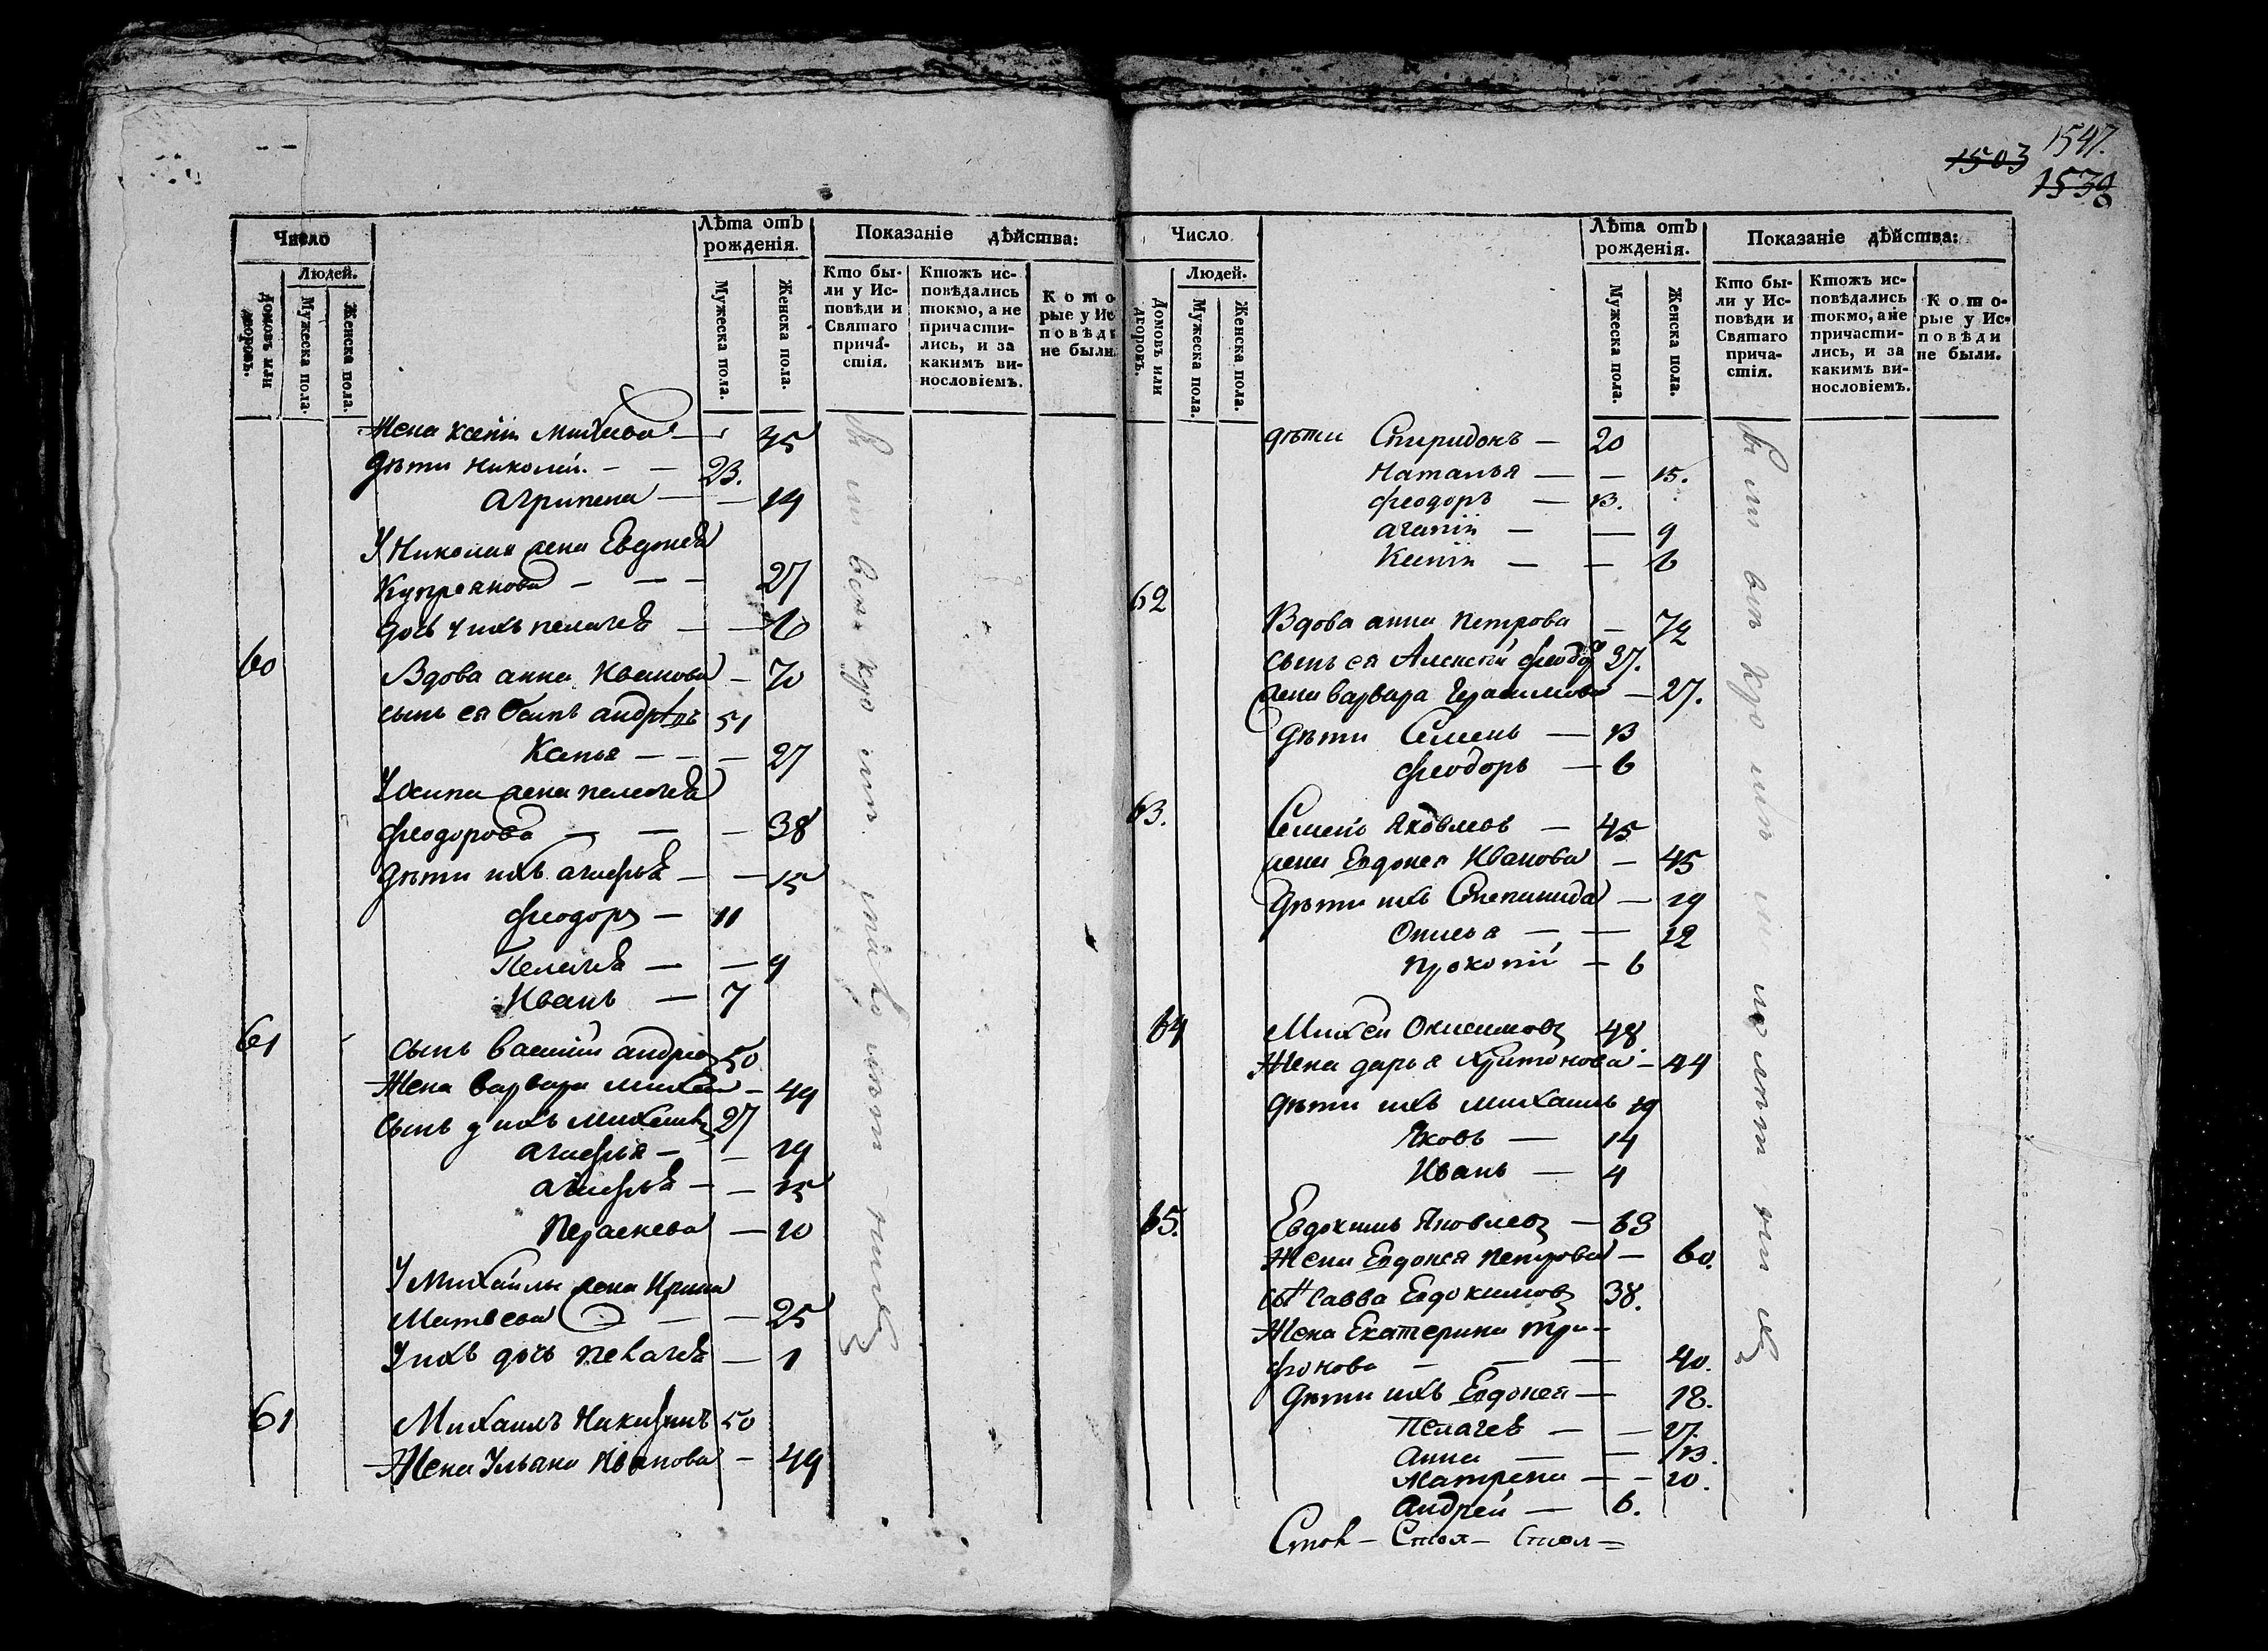 1547.
1503
1539
Число
Лѣта отъ рожденія.
Показаніе дѣйства:
Людей.
Домовъ или дворовъ.
Мужеска пола.
Женска пола.
Мужеска пола.
Женска пола.
Кто были у Исповѣди и Святаго причастія.
Ктожъ исповѣдались токмо, а не причастились, и за какимъ винословіемъ.
Которые у Исповѣди не были.
Жена Ксенія Михеева — 45
дѣти Николай — — 23.
Агрипена — — 14
У Николая жена Евдокея
Купреянова — — — 27
дочь у ихъ пелагея — — 6
60 Вдова анна Иванова — 70
сынъ ея Осипъ андрѣевъ 51
Ксенья — — — 27
У Осипа жена пелагея
феодорова — — — 38
дѣти ихъ агафья — — 15
феодоръ — 11
Пелагея — — 9
Иванъ — 7
61 сынъ василій андрее 50
Жена варвара михеи — 49
сынъ у ихъ михаилъ 27
агафья — — 19
агафья — — 15
Параскева — 10
У Михайлы жена Ирина
Матвеева — — — 25
У ихъ дочь пелагея — 1
61 Михаилъ Никифоръ 50
Жена Ульяна Иванова — 49
Число
Лѣта отъ рожденія.
Показаніе дѣйства:
Людей.
Домовъ или дворовъ.
Мужеска пола.
Женска пола.
Мужеска пола.
Женска пола.
Кто были у Исповѣди и Святаго причастія.
Ктожъ исповѣдались токмо, а не причастились, и за какимъ винословіемъ.
Которые у Исповѣди не были.
дѣти Спиридонъ — 20
Наталья — — 15.
феодоръ — 13.
агапія — — 9
Ксенія — — 6
62
Вдова анна Петрова — 72
сынъ ея Алексей феодо 37.
жена варвара Герасимова — 27.
дѣти Семенъ — 13
феодоръ — 6
63. Семенъ Яковлевъ — 45
жена Евдокея Иванова — 45
дѣти ихъ Степанида — 19
Офилья — — 12
прокопій — 6
64 Михей Онисимовъ 48
Жена дарья Харитонова — 44
дѣти ихъ михаилъ 19
Яковъ — 14
Иванъ — 4
65. Евдокимъ Яковлевъ — 63
Жена Евдокея петрова — 60.
сынъ савва Евдокимовъ 38.
Жена Екатерина три-
фонова — — — 40.
дѣти ихъ Евдокея — 18.
Пелагея — — 17.
анна — — 13.
Матрена — — 10.
андрей — 6.